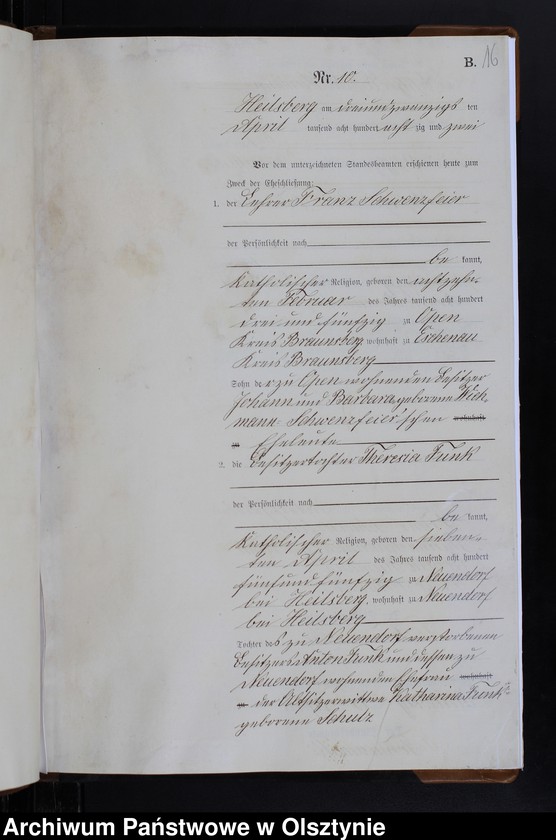 B. 16
Nr. 10.
Heilsberg am dreiundzwanzigs ten
April tausend acht hundert acht zig und zwei
Vor dem unterzeichneten Standesbeamten erschienen heute zum
Zweck der Eheschließung:
1. der Lehrer Franz Schwenzfeier
der Persönlichkeit nach
be kannt,
katholischer Religion, geboren den achtzehn-
ten Februar des Jahres tausend acht hundert
drei und fünfzig zu Open
Kreis Braunsberg, wohnhaft zu Eschenau
Kreis Braunsberg
Sohn der zu Open wohnenden Besitzer
Johann und Barbara geborene Wich
mann Schwenzfeier'schen wohnhaft
zu Eheleute
2. die Besitzertochter Theresia Funk
der Persönlichkeit nach
be kannt,
katholischer Religion, geboren den sieben-
ten April des Jahres tausend acht hundert
fünfundfünfzig zu Neuendorf
bei Heilsberg, wohnhaft zu Neuendorf
bei Heilsberg
Tochter des zu Neuendorf verstorbenen
Besitzers Anton Funk und dessen zu
Neuendorf wohnenden Ehefrau wohnhaft
zu der Altsitzerwittwe Katharina Funk
geborene Schulz
Archiwum Państwowe w Olsztynie